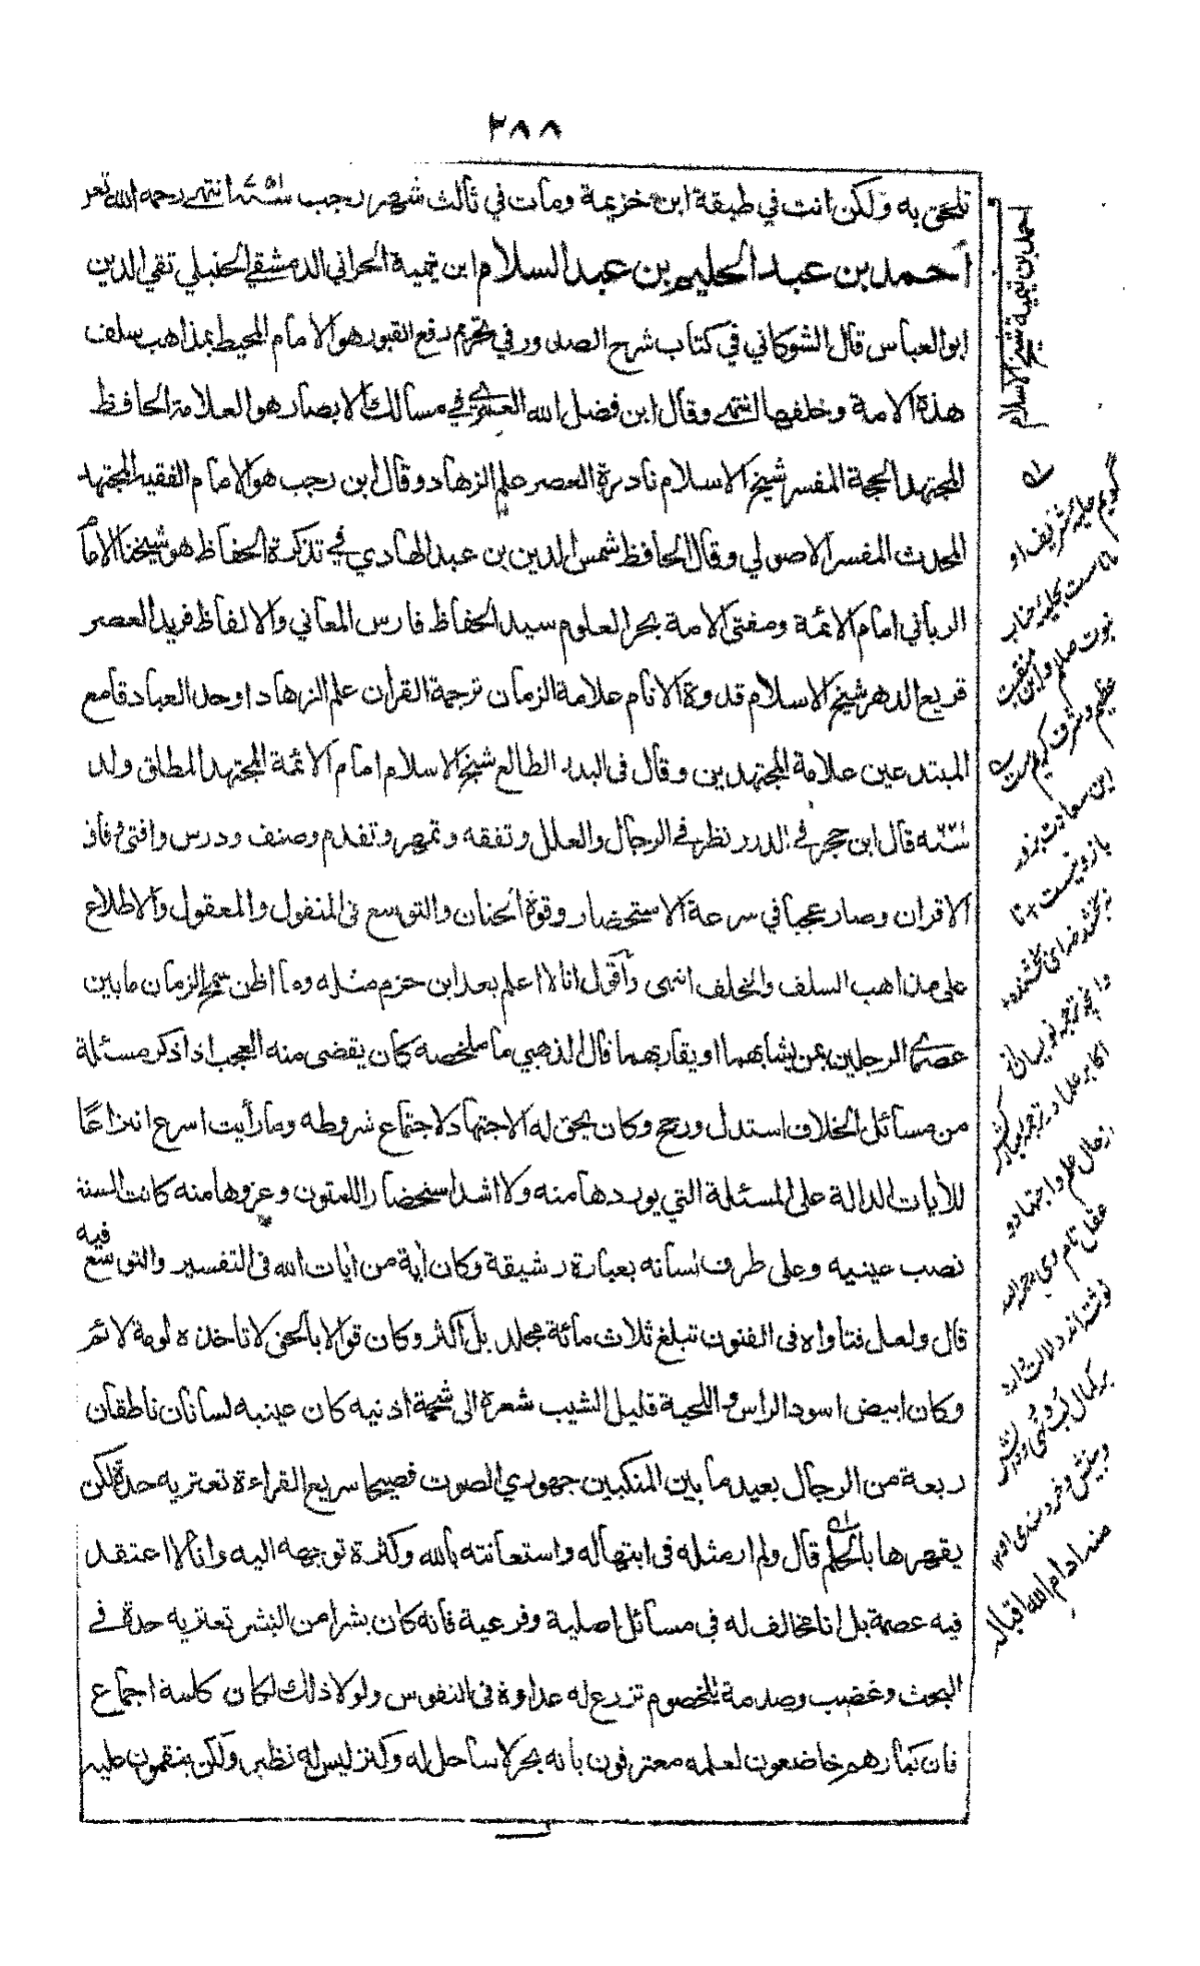 ٢٨٨
تلحق به ولكن انت في طبقة ابن خزيمة ومات في ثالث شهر رجب انتهى رحمه الله تعر
أحمد بن عبد الحليم بن عبد السلام ابن تيمية الحراني الدمشقي الحنبلي تقي الدين
ابو العباس قال الشوكاني في كتاب شرح الصدور في تحريم رفع القبور هو الامام المحيط بمذاهب سلف
هذه الامة وخلفها انتهى وقال ابن فضل الله العمري في مسالك الابصار هو العلامة الحافظ
المجتهد الحجة المفسر شيخ الاسلام نادرة العصر علم الزهاد وقال ابن رجب هو الامام الفقيه المجتهد
المحدث المفسر الاصولي وقال الحافظ شمس الدين بن عبد الهادي في تذكرة الحفاظ هو شيخنا الامام
الرباني امام الائمة ومفتى الامة بحر العلوم سيد الحفاظ فارس المعاني والالفاظ فريد العصر
قريع الدهر شيخ الاسلام قدوة الانام علامة الزمان ترجمة القران علم الزهاد اوحد العباد قامع
المبتدعين علامة المجتهدين وقال فى البدر الطالع شيخ الاسلام امام الائمة المجتهد المطلق ولد
سنة قال ابن حجر في الدرر نظر في الرجال والعلل وتفقه وتمهر وتقدم وصنف ودرس وافتى وفاق
الاقران وصار عجبا في سرعة الاستحضار وقوة الجنان والتوسع فى المنقول والمعقول والاطلاع
على مذاهب السلف والخلف انتهى وأقول انا لا اعلم بعد ابن حزم مثله وما اظن سمح الزمان ما بين
عصرى الرجلين بمن يشابههما او يقاربهما قال الذهبي ما ملخصه كان يقضى منه العجب اذا ذكر مسئلة
من مسائل الخلاف استدل ورجح وكان يحق له الاجتهاد لاجتماع شروطه وما رأيت اسرع انتزاعا
للأيات الدالة على المسئلة التي يوردها منه ولا اشد استحضارا للمتون وعزوها منه كانت السنة
نصب عينيه وعلى طرف لسانه بعبارة رشيقة وكان أية من أيات الله فى التفسير والتوسع فيه
قال ولعل فتاواه فى الفنون تبلغ ثلاث مائة مجلد بل اكثر وكان قوالا بالحق لا تاخذه لومة لائم
وكان ابيض اسود الراس واللحية قليل الشيب شعره الى شحمة اذنيه كان عينيه لسانان ناطقان
ربعة من الرجال بعيد ما بين المنكبين جهوري الصوت فصيحا سريع القراءة تعتريه حدة لكن
يقهرها بالحلم قال ولم ار مثله فى ابتهاله واستعانته بالله وكثرة توجهه اليه وانا لا اعتقد
فيه عصمة بل انا مخالف له في مسائل اصلية وفرعية فانه كان بشرا من البشر تعتريه حدة في
البحث وغضب وصدمة للخصوم تزرع له عداوة فى النفوس ولولا ذلك لكان كلمة اجماع
فان كبارهم خاضعون لعلمه معترفون بانه بحر لا ساحل له وكنز ليس له نظير ولكن ينقمون عليه
احمد بن تيمية شيخ الاسلام
گويم حليهٔ شريف او
ماناست بحليهٔ جناب
نبوت صللم واين منقبت
عظيم وشرف كريم ست
اين سعادت بزور
بازو نيست * تا
نه بخشد خداى بخشنده *
وانچه ترجمه نويسان
اكابر علما در ترجمه
از حال علم واجتهاد و
عقل تام وى رحمه الله
نوشته اند دلالت دارد
بر كمال
وبينش وخردمندى
ادام الله اقباله